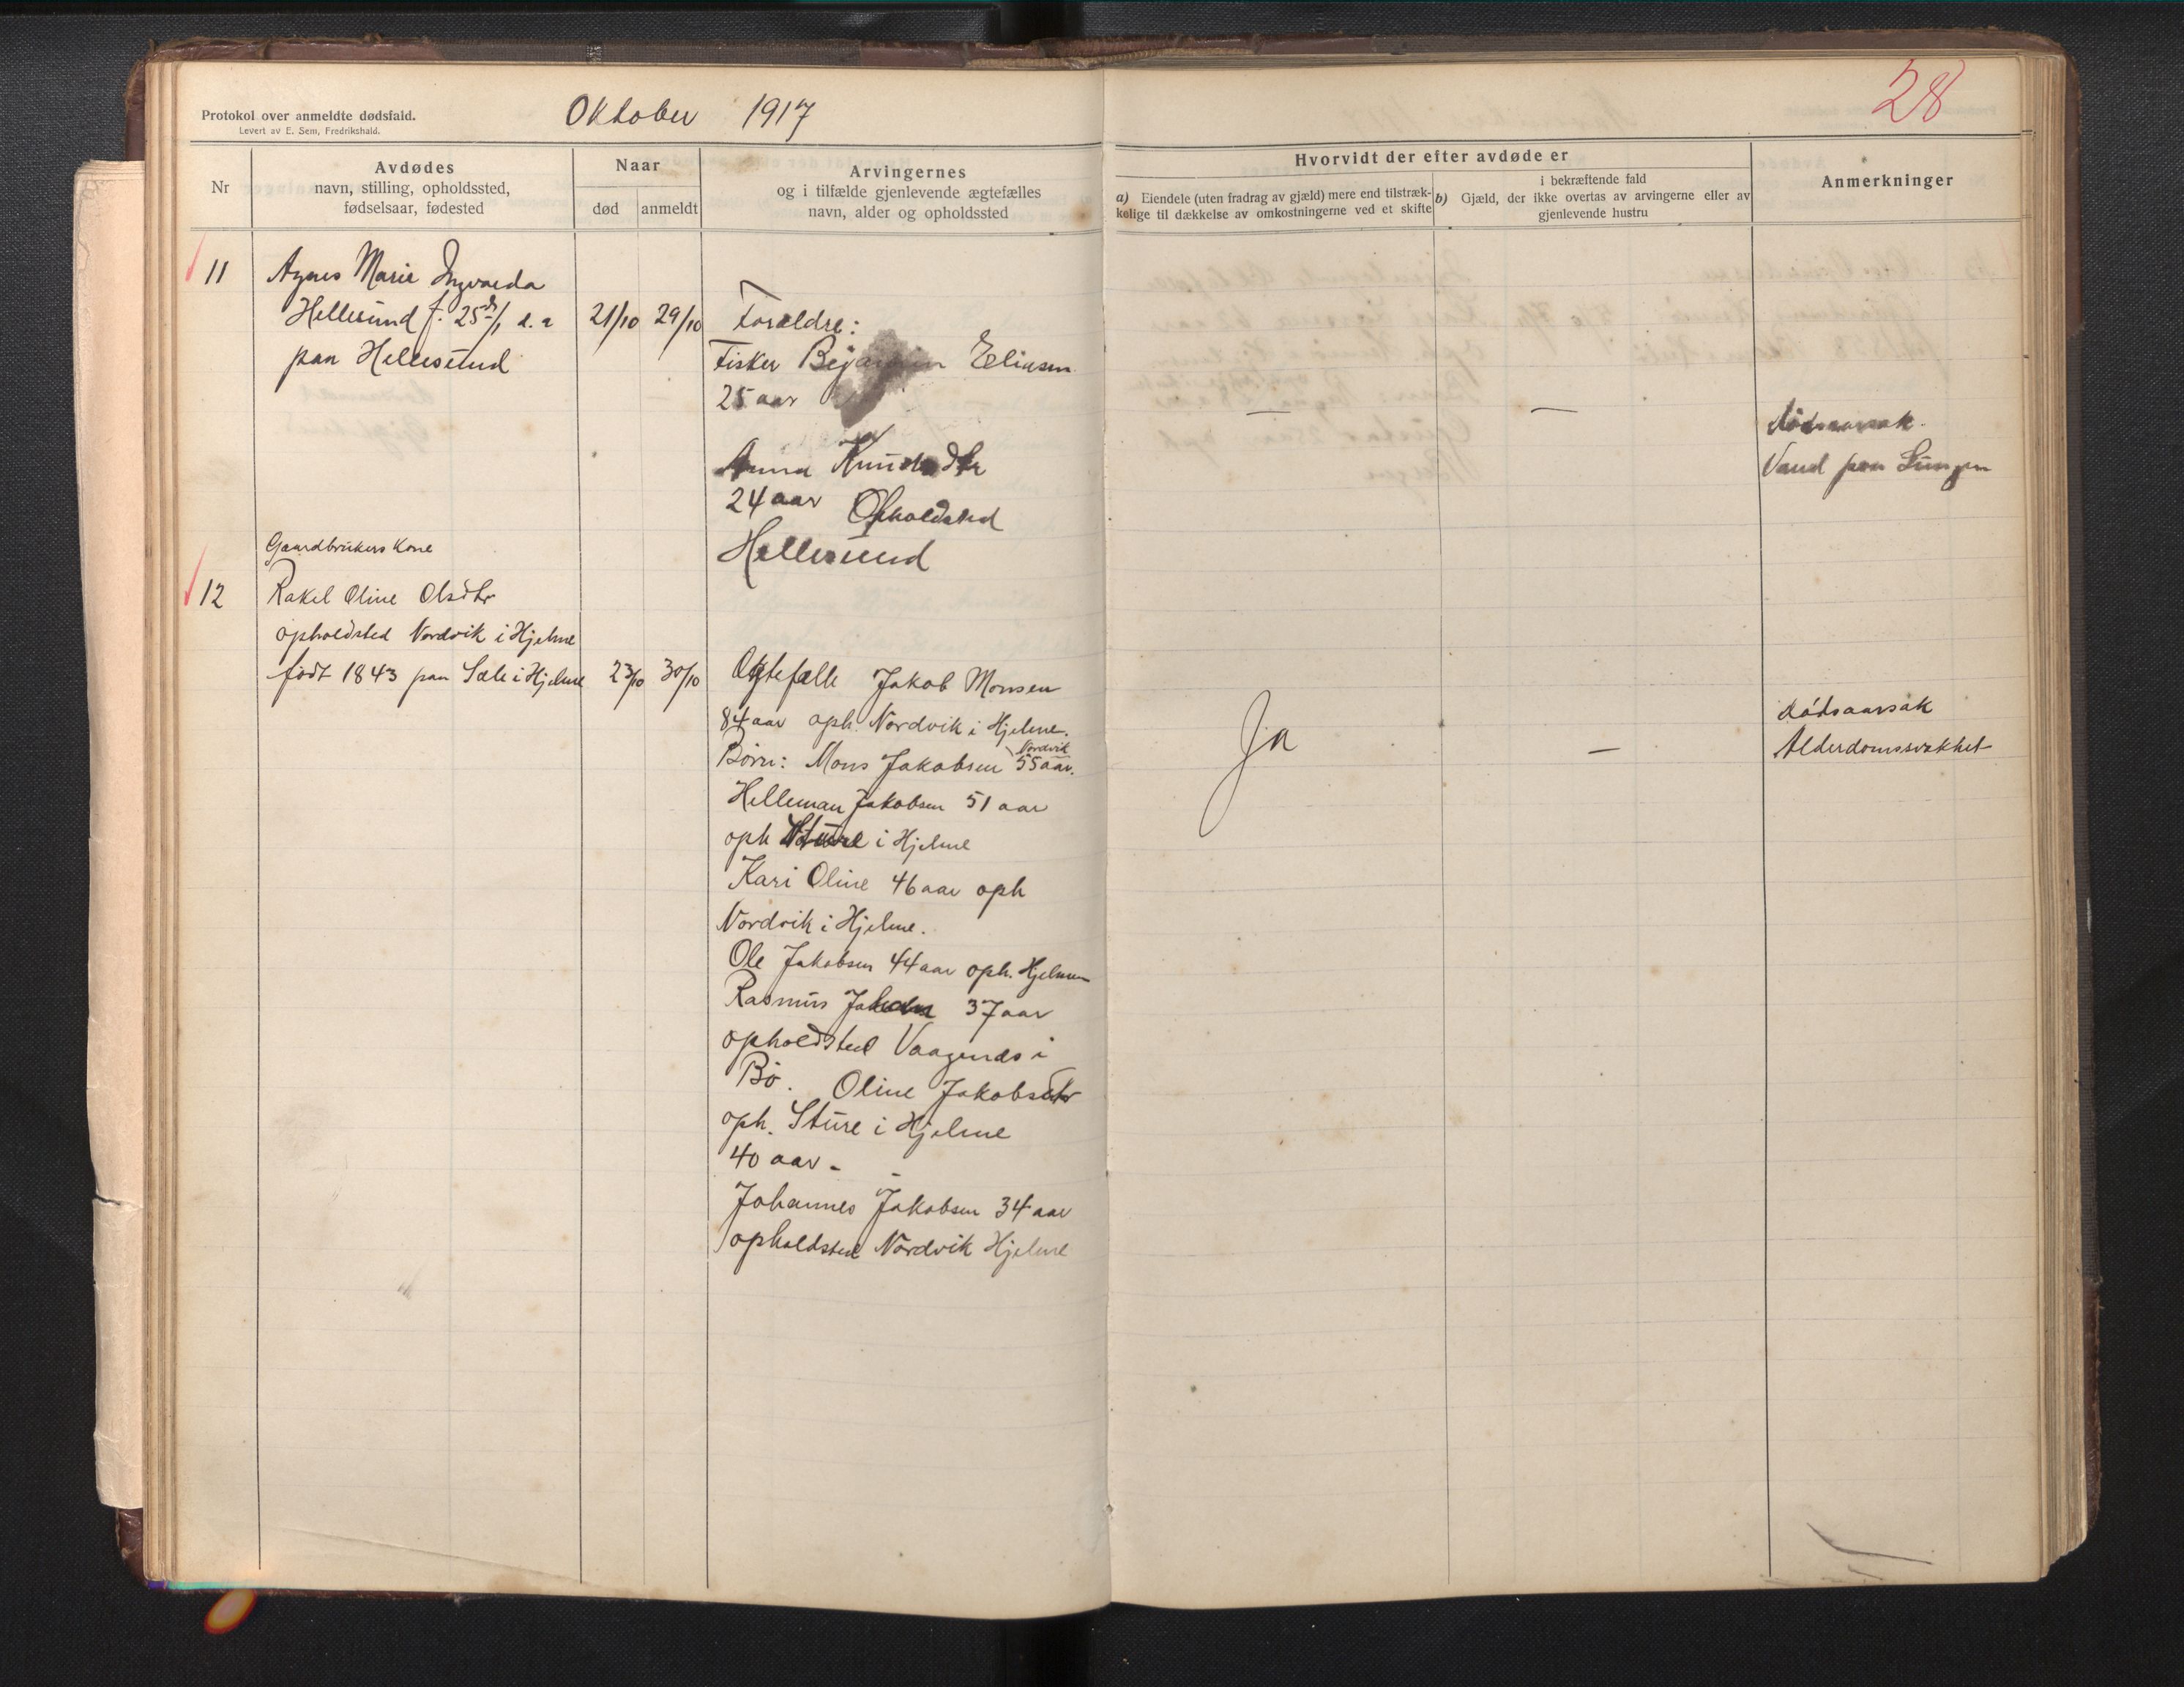 Protokol over anmeldte dødsfald.
Levert av E. Sem, Fredrikshald.
Oktober 1917
28
Nr
Avdødes
navn, stilling, opholdssted,
fødselsaar, fødested
Naar
død
anmeldt
Arvingernes
og i tilfælde gjenlevende ægtefælles
navn, alder og opholdssted
Hvorvidt der efter avdøde er
a) Eiendele (uten fradrag av gjæld) mere end tilstræk-
kelige til dækkelse av omkostningerne ved et skifte
i bekræftende fald
b) Gjæld, der ikke overtas av arvingerne eller av
gjenlevende hustru
Anmerkninger
11
Agnes Marie Ingvarda
Hellesund f. 25/1 d. a
paa Hellesund
21/10 29/10
Forældre:
Fisker Bejamin Eliasen
25 aar
Anna Knudsdtr
24 aar Opholdsted
Hellesund
— —
dødsaarsak.
Vand paa Lungen
12
Gaardbrukers Kone
Rakel Oline Olsdtr
opholdsted Nordvik i Hjelme
født 1843 paa Sæle i Hjelme
23/10 30/10
Ægtefælle Jakob Monsen
84 aar oph. Nordvik i Hjelme.
Nordvik
Børn: Mons Jakobsen 55 aar.
Helleman Jakobsen 51 aar
oph Sture i Hjelme
Kari Oline 46 aar oph
Nordvik i Hjelme.
Ole Jakobsen 44 aar oph. Hjelmen
Rasmus 37 aar
opholdsted Vaagenes i
Bø. Oline Jakobsdtr
oph. Sture i Hjelme
40 aar -
Johannes Jakobsen 34 aar
opholdsted Nordvik Hjelme
Ja —
dødsaarsak
Alderdomssvakhet